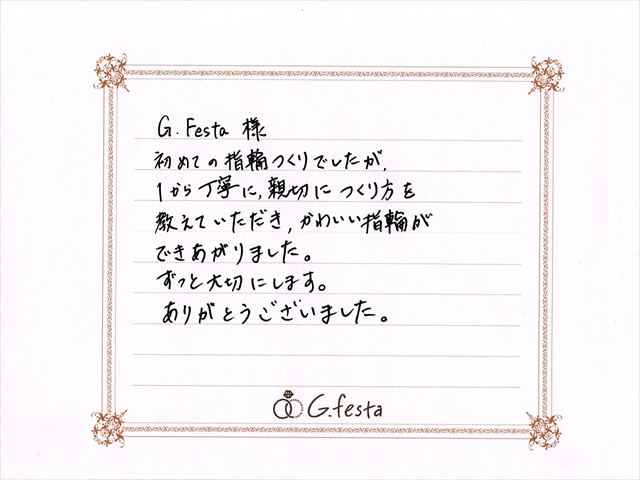 G.Festa 様
初めての指輪つくりでしたが,
1から丁寧に,親切につくり方を
教えていただき,かわいい指輪が
できあがりました。
ずっと大切にします。
ありがとうございました。
G.festa